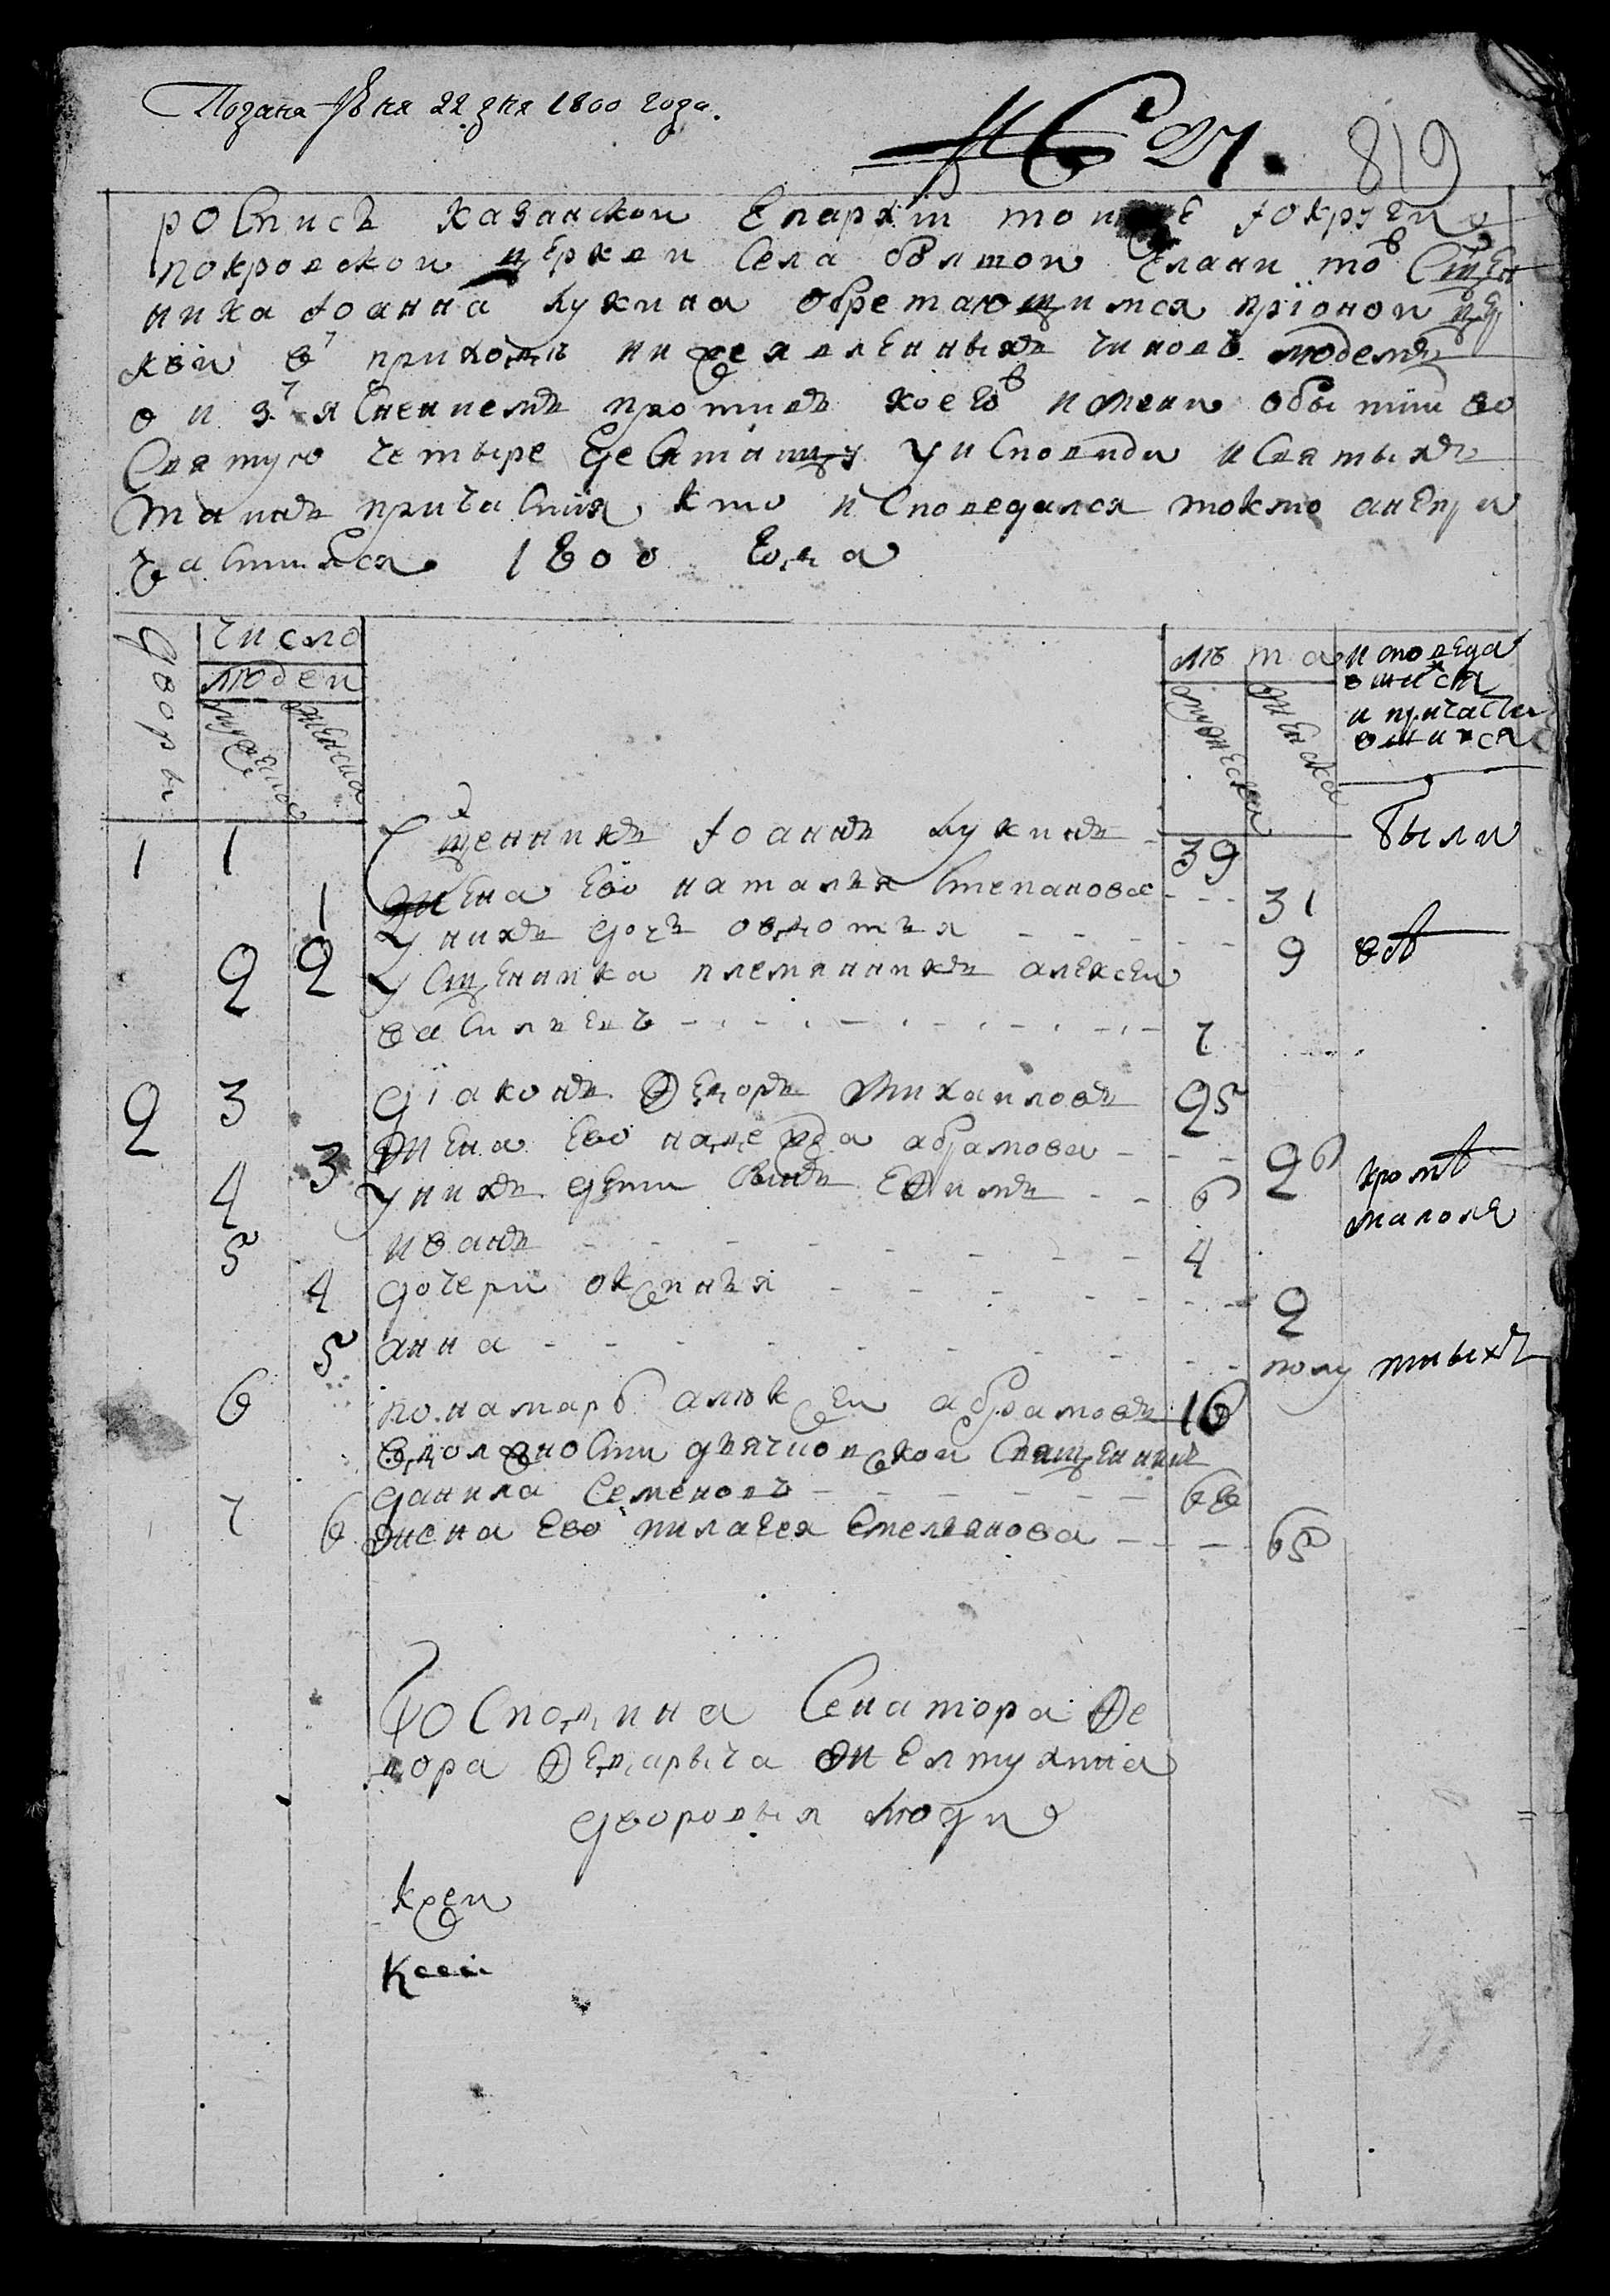 Подана Июня 22 дня 1800 года.
№ 27. 819
роспись казанской Епархїи тоиже округи
покровской церкви села болшои Елани того Сщен
ника Іоанна Лукина обретающимся прионой цер
кви в приходѣ нижеявленныхъ чиновъ людемъ
с изъяснениемъ противъ коего имени о бытии во
святую четыредесятницу у исповеди и святыхъ
таинъ причастия, кто исповедался токмо а непри
частился 1800 года
дворы
число
людеи
мужеска
женска
лѣта
мужеска
женска
исповеда
вшихся
и причасти
вшихся
1 1 Сщенникъ Іоаннъ Лукинъ 39 были
1 жена Ево наталья Степанова 31
2 У нихъ дочь овдотья 9 всѣ
2 У Сщенника племянникъ алексеи
василиевъ 7
2 3 Дїаконъ Ѳедоръ Михаиловъ 25
3 жена Ево надежда абрамова 26 кромѣ
4 У нихъ дети Сынъ Ефимъ 6 малолѣ
5 иванъ 4
4 дочери оксинья 2
5 анна полу тныхъ
6 понамарь алѣксеи абрамовъ 16
в должности дьячковской Священникъ
7 данила Семеновъ 68
6 жена Ево пилагея Емельянова 65
Господина Сенатора Ѳе
дора Ѳедарыча Желтухина
дворовыя люди